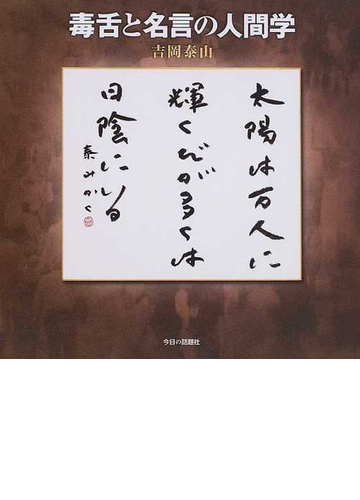 毒舌と名言の人間学
吉岡泰山
太陽は万人に
輝くだが多くは
日陰にいる
泰山かく
今日の話題社